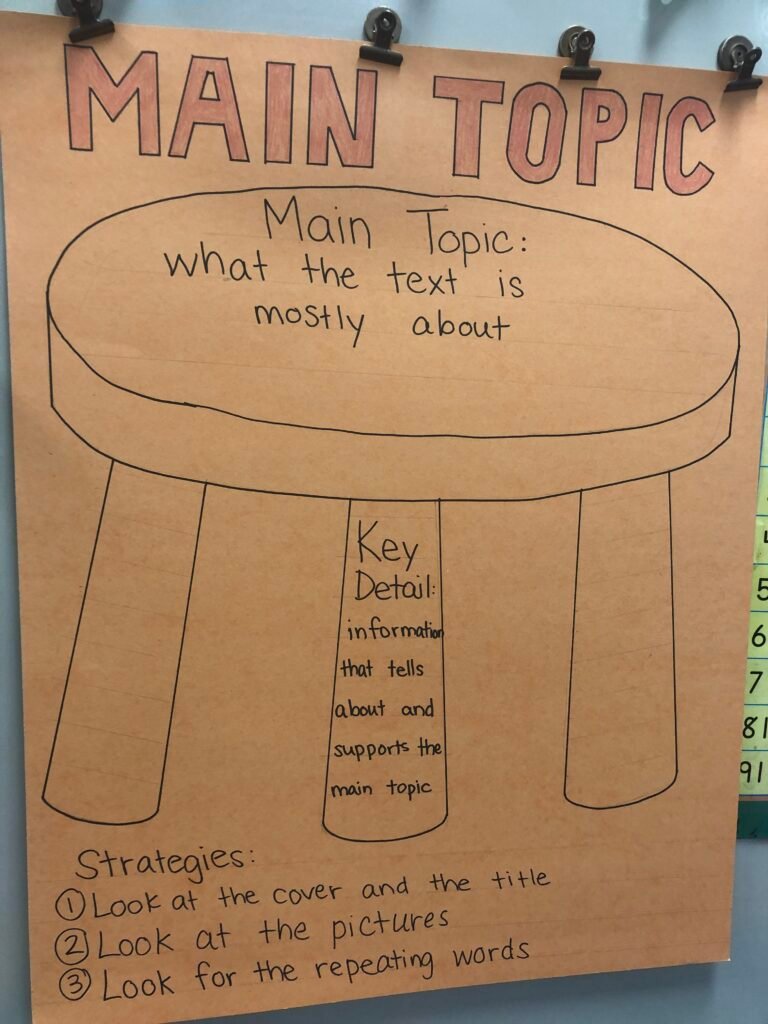 MAIN TOPIC
Main Topic:
what the text is
mostly about
Key
Detail:
information
that tells
about and
supports the
main topic
Strategies:
① Look at the cover and the title
② Look at the pictures
③ Look for the repeating words
5
6
7
81
91